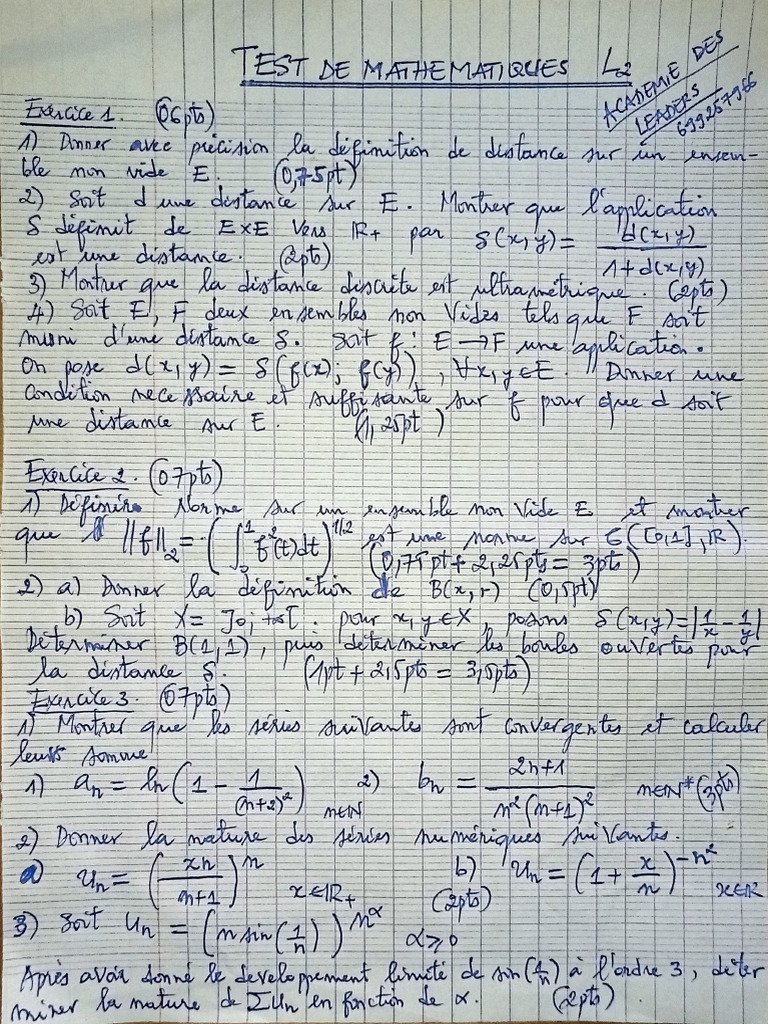 TEST DE MATHEMATIQUES L2
ACADEMIE DES
LEADERS
699257966
Exercice 1. (06pts)
1) Donner avec précision la définition de distance sur un ensem-
ble non vide E. (0,75pt)
2) Soit d une distance sur E. Montrer que l'application
δ définit de E×E vers IR+ par δ(x,y) = d(x,y) / 1+d(x,y)
est une distance. (2pts)
3) Montrer que la distance discrète est ultramétrique. (2pts)
4) Soit E, F deux ensembles non vides tels que F soit
muni d'une distance δ. Soit f : E → F une application.
On pose d(x,y) = δ(f(x); f(y)), ∀x,y ∈ E. Donner une
condition necessaire et suffisante sur f pour que d soit
une distance sur E. (1,25pt)
Exercice 2. (07pts)
1) Définire Norme sur un ensemble non vide E et montrer
que ||f||₂ = (∫₀¹ f²(t)dt)^{1/2} est une norme sur C([0,1], IR).
(0,75pt + 2,25pts = 3pts)
2) a) Donner la définition de B(x,r) (0,5pt)
b) Soit X = ]0; +∞[. pour x,y ∈ X, posons δ(x,y) = |1/x - 1/y|
Déterminer B(1,1), puis déterminer les boules ouvertes pour
la distance δ. (1pt + 2,5pts = 3,5pts)
Exercice 3. (07pts)
1) Montrer que les séries suivantes sont convergentes et calculer
leurs somme
1) aₙ = ln(1 - 1/(n+2)²) n∈IN 2) bₙ = 2n+1 / n²(n+1)² n∈IN* (3pts)
2) Donner la nature des séries numériques suivantes.
a) uₙ = (xn / n+1)^n x∈IR+ b) uₙ = (1 + x/n)^{-n²} x∈IR
(2pts)
3) Soit uₙ = (n sin(1/n))^{n^α} α ⩾ 0
Après avoir donné le developpement limité de sin(1/n) à l'ordre 3, déter
miner la nature de ΣUn en fonction de α. (2pts)